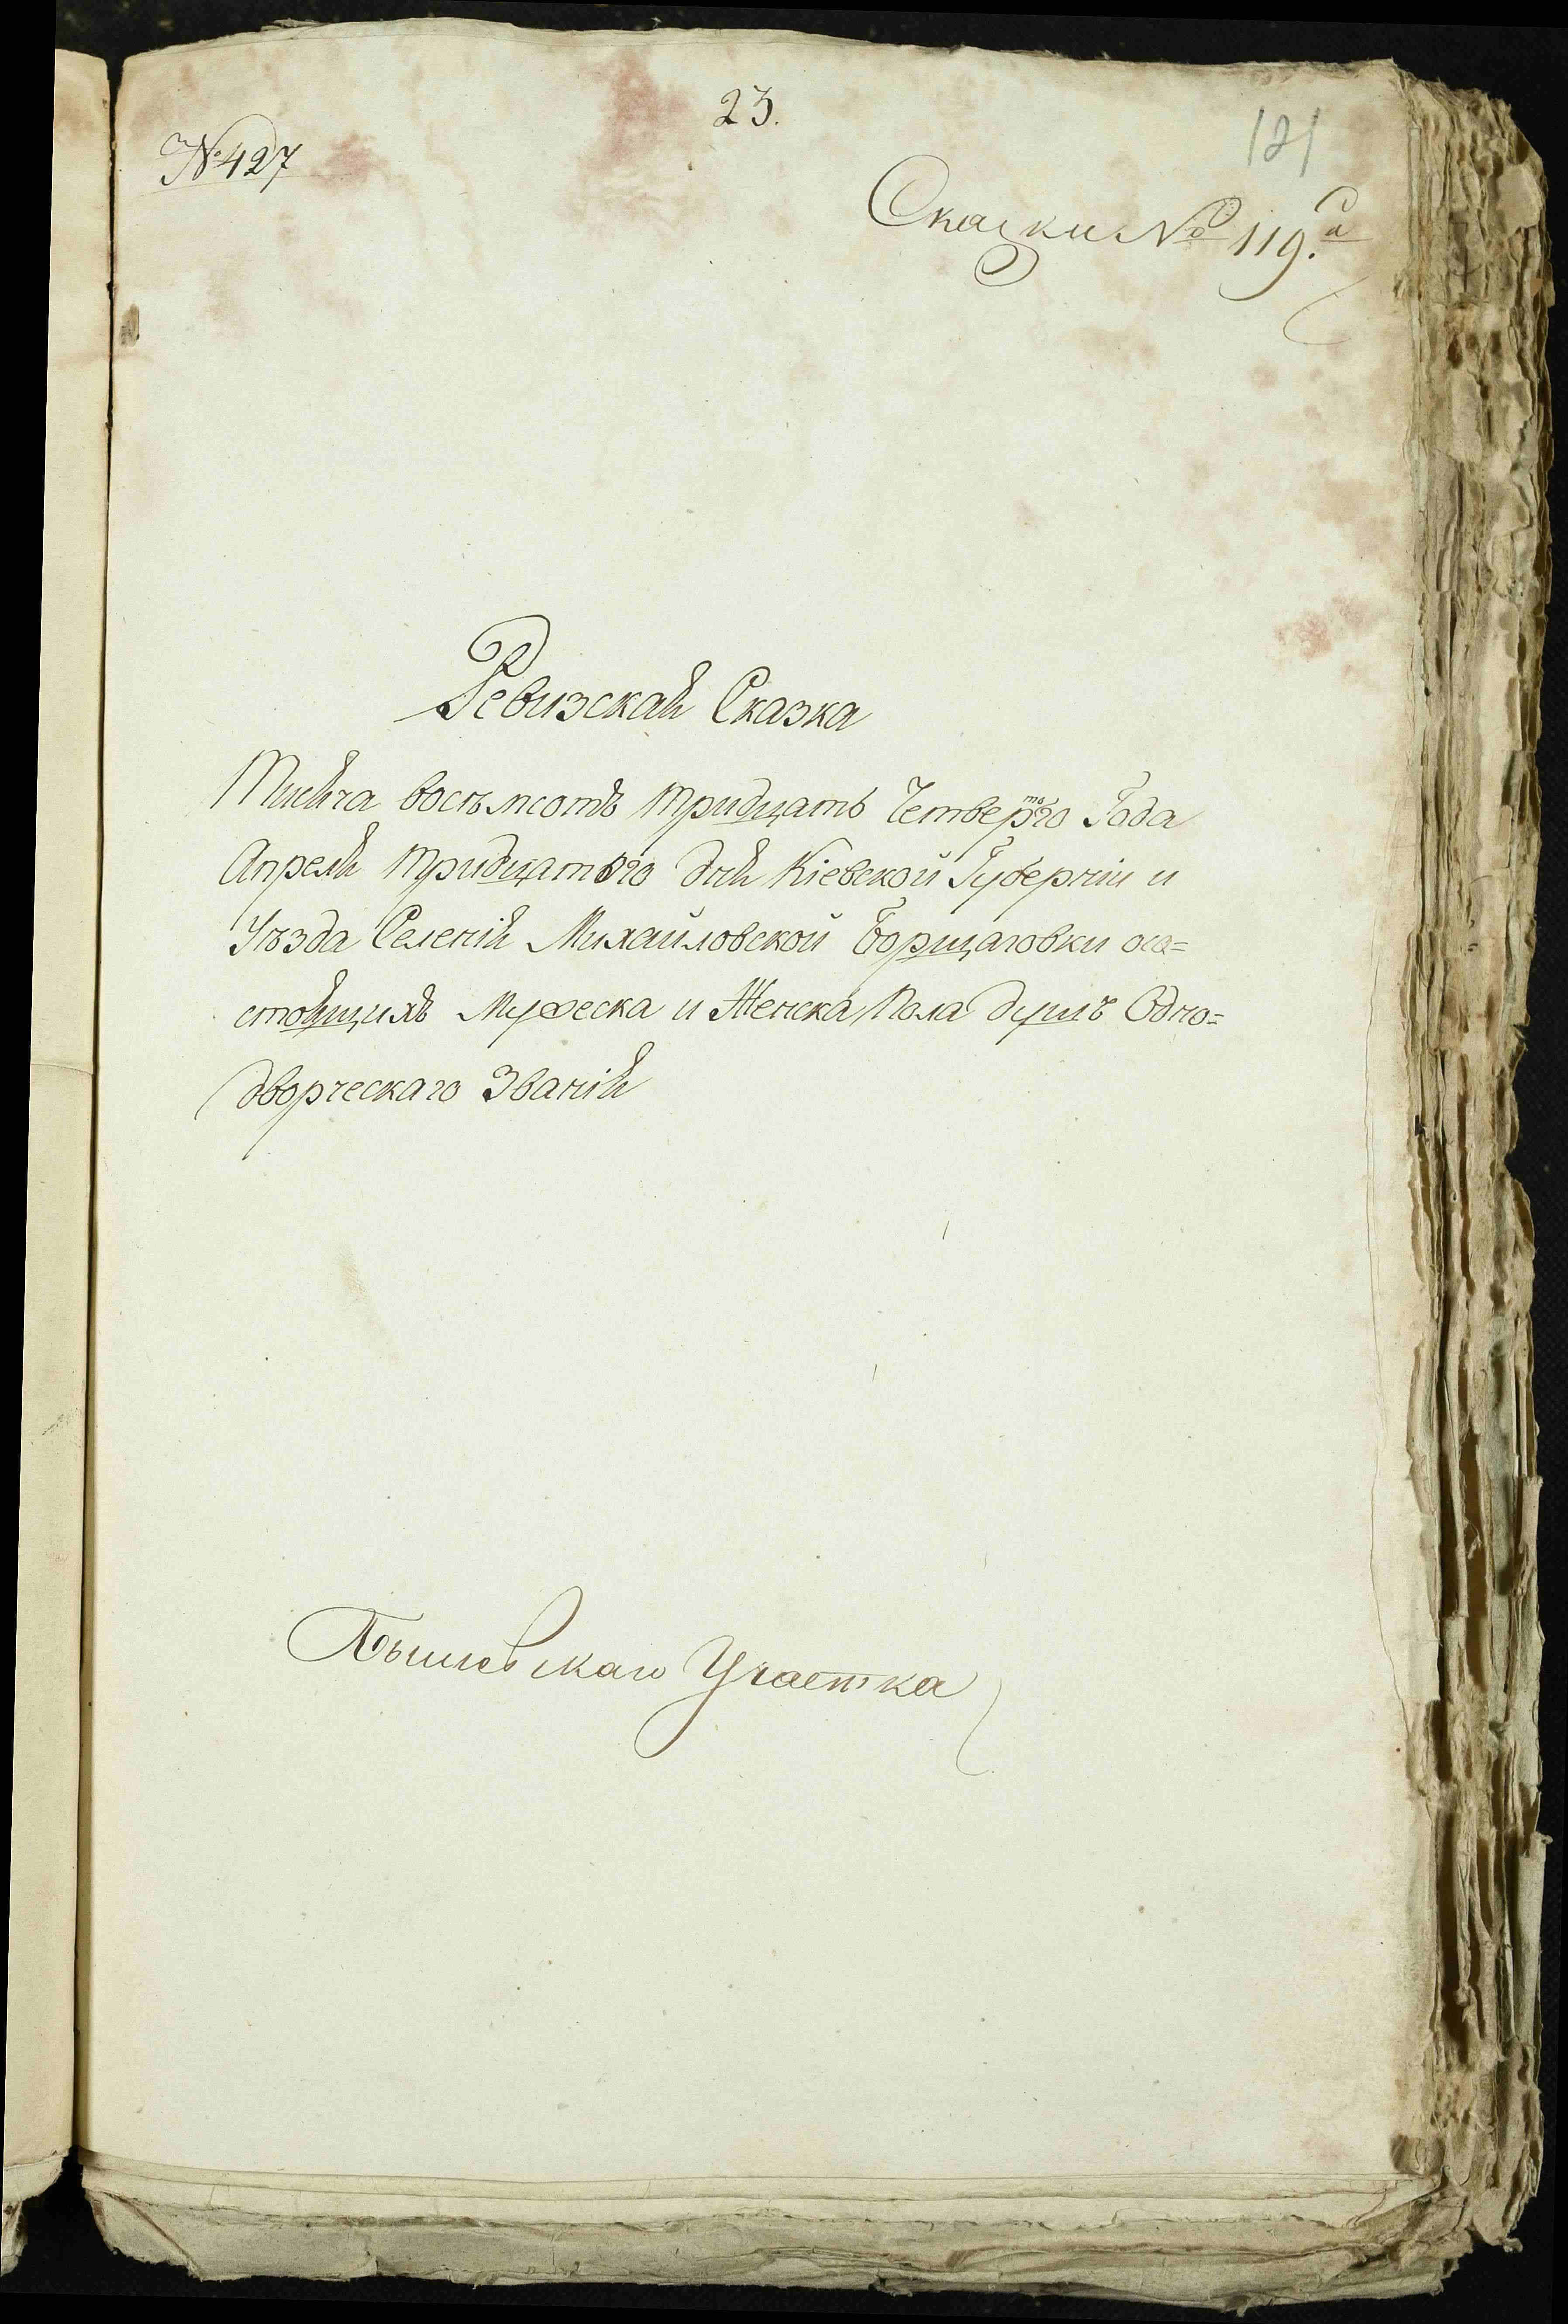 23.
№ 427
121
Сказки № 119.а
Ревизская Сказка
Тисяча восѣмсотъ тридцать Четвертого Года
Апреля тридцатого дня Кіевской Губерніи и
Уѣзда Селенія Михайловской Борщаговки о со=
стоящихъ мужеска и Женска Пола душъ Одно=
дворческаго Званія
Бышевскаго Участка